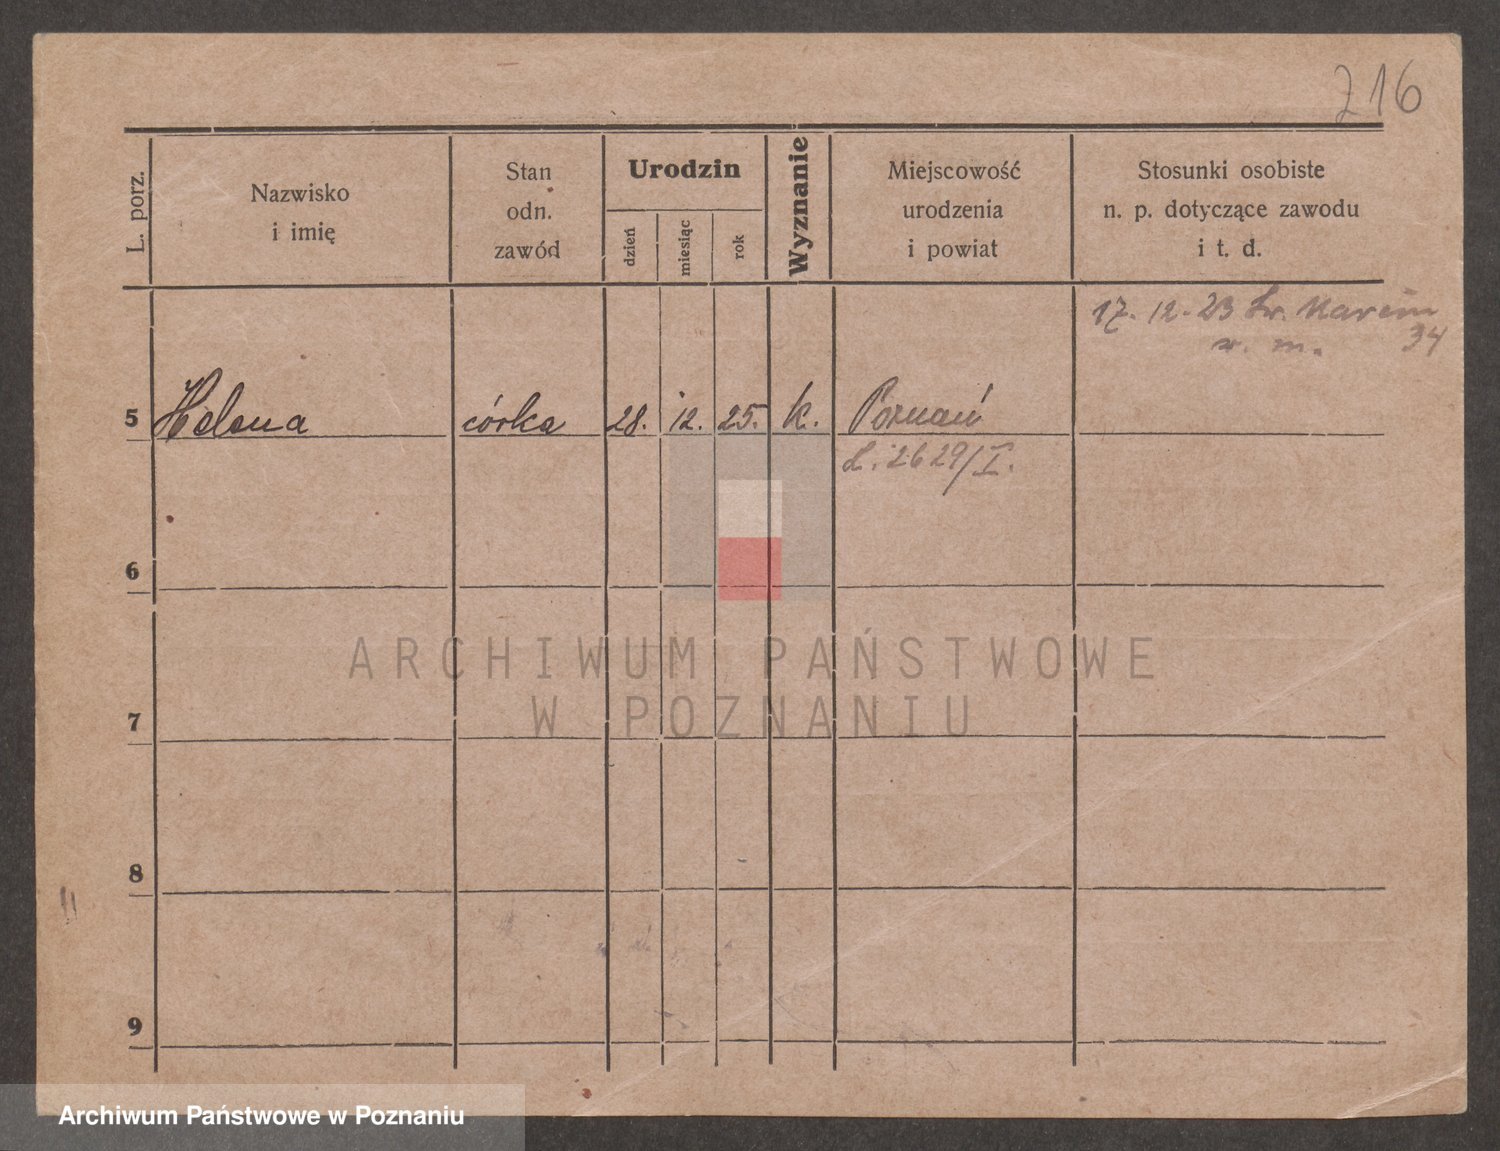 216
L. porz.
Nazwisko
i imię
Stan
odn.
zawód
Urodzin
dzień
miesiąc
rok
Wyznanie
Miejscowość
urodzenia
i powiat
Stosunki osobiste
n. p. dotyczące zawodu
i t. d.
17. 12. 23 Św. Marcin
34
m.
5 Helena córka 28. 12. 25. k. Poznań
L. 2629/I.
6
7
8
9
ARCHIWUM PAŃSTWOWE
W POZNANIU
Archiwum Państwowe w Poznaniu